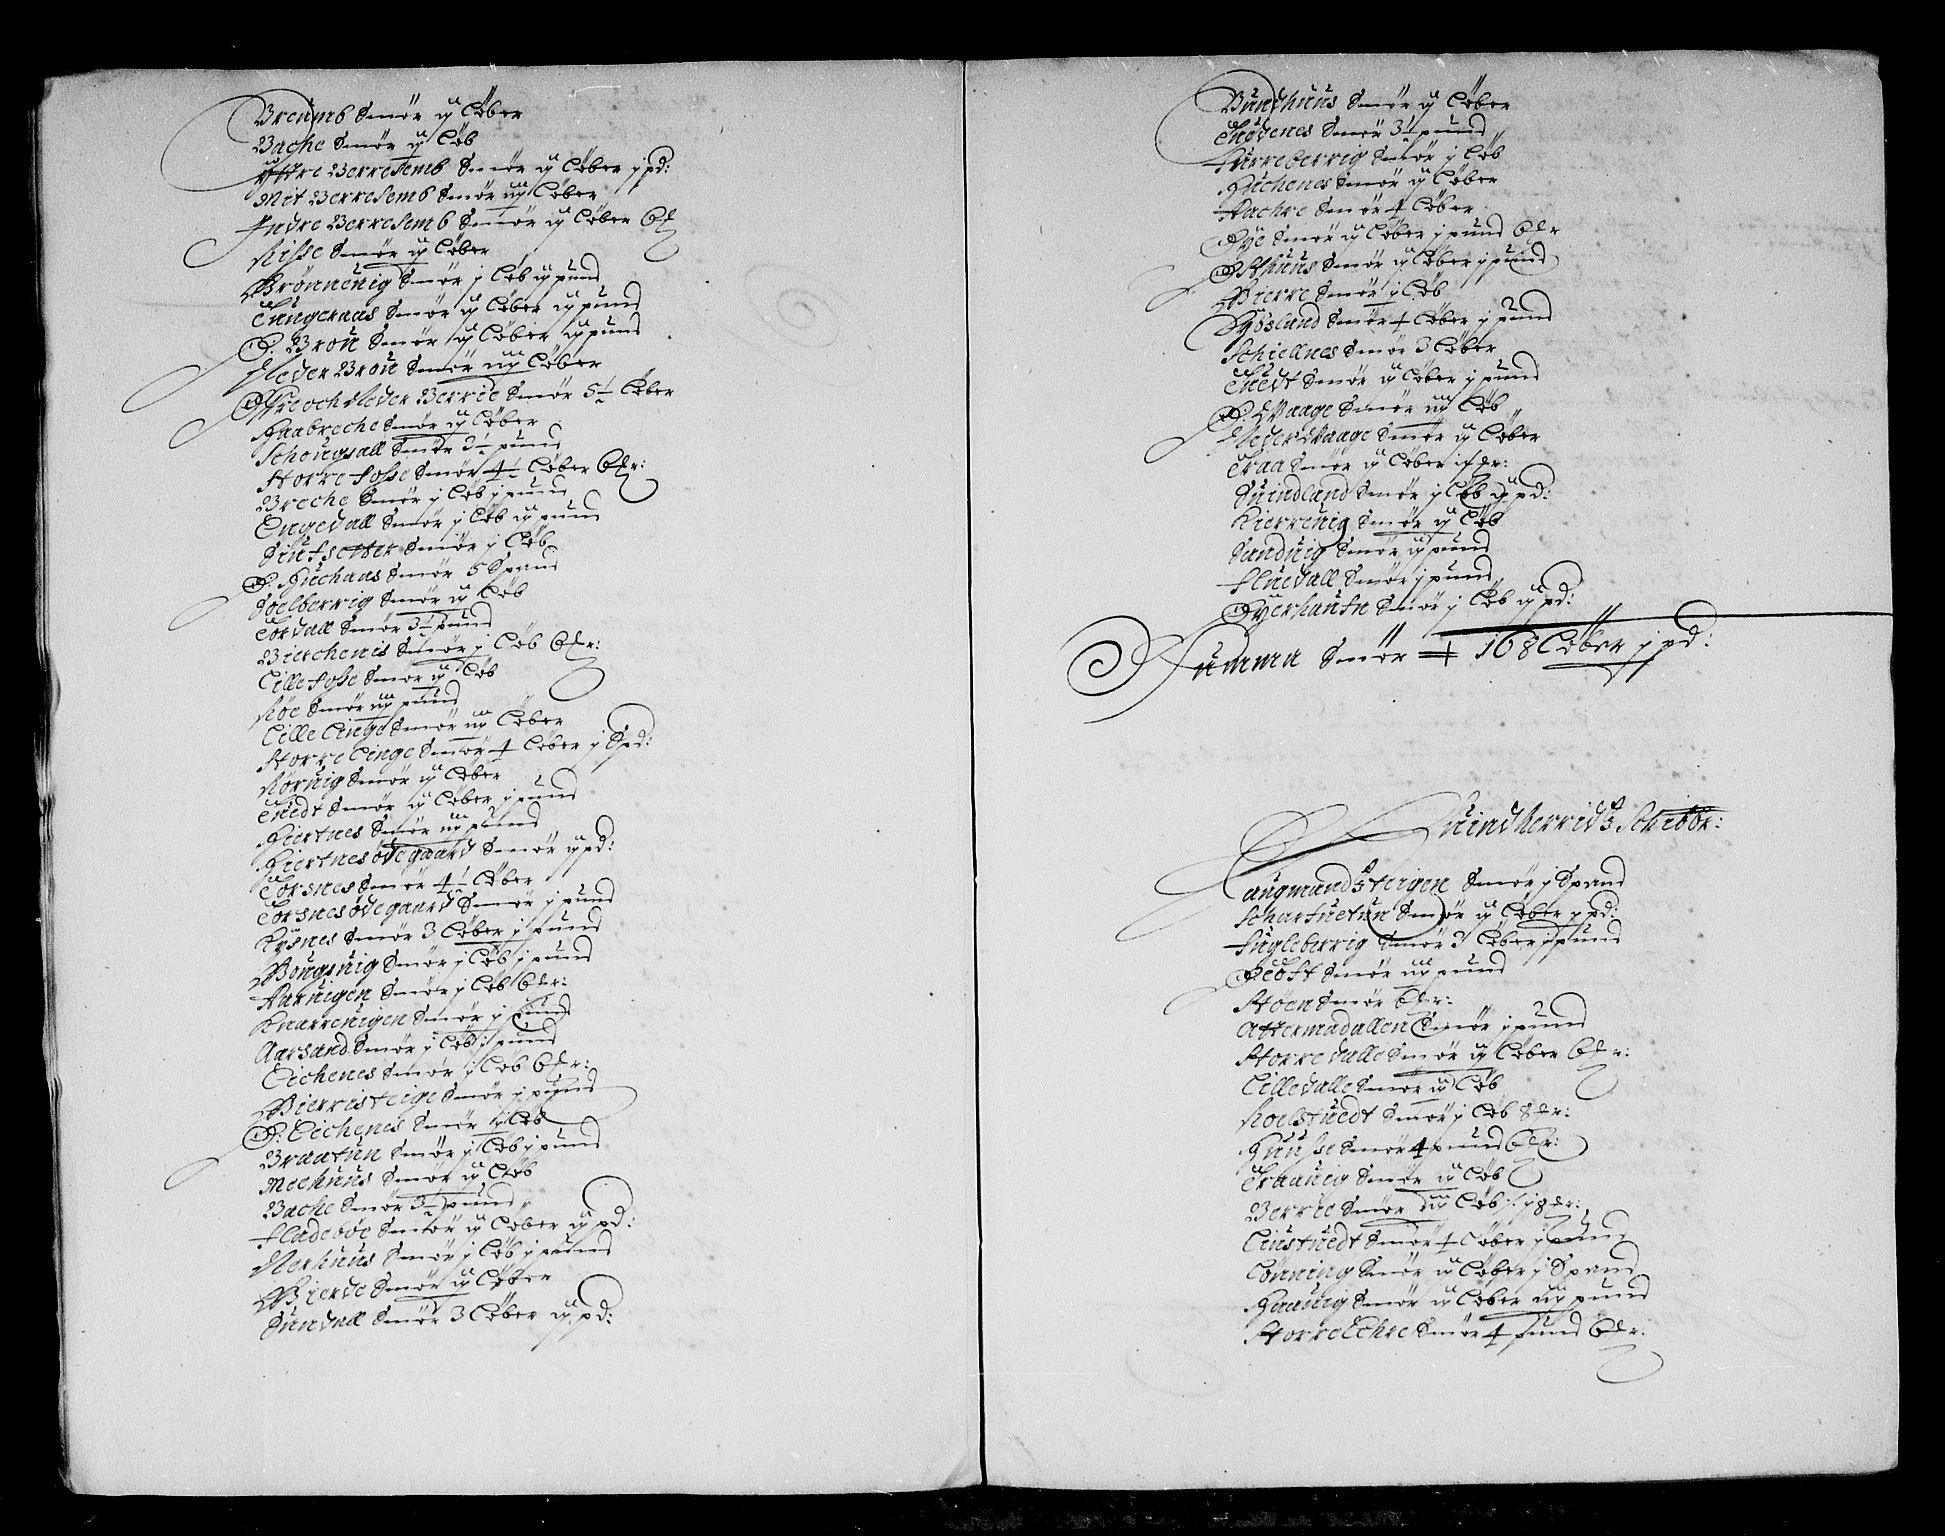 Breümb Smør ij Løber
Bache Smør ij Løb
Yttre Berresemb Smør ij Løber j pd:
Mit Berresemb Smør iij Løber
Indre Berresemb Smør ij Løber
Risse Smør ij Løber
Brönnenig Smør j Løb ij pund
Tüngeraas Smør ij Løber ij pund
Ø. Broü Smør ij Løber ij pund
Neder Broü Smør iij Løber
Øffre och Neder Berrie Smør 5½ Løber
Raabreche Smør ij Løber
Schougsall Smør 3½ pund
Storre fosse Smør 4½ Løber 6 mr:
Breche Smør j Løb j pund
Engedall Smør j Løb ij pund
Sintsetter Smør j Løb
Ø. Rüchaas Smør 5 Spand
Soelberrig Smør ij Løb
Tordall Smør 3½ pund
Bierchenis Smør j Løb 6 mr:
Lille fosse Smør ij Løb
Røe Smør iij pund
Lille Linge Smør iij Løber
Storre Linge Smør 4 Løber j Spd:
Rörüig Smør ij Løber
Tüedt Smør ij Løber j pund
Hiertnes Smør iij pund
Hiertnes ødegaard Smør ij pd:
Torsnes Smør 4½ Løber
Torsnes ødegaard Smør j pund
Kysnes Smør 3 Løber j pund
Bougsüig Smør j Løb j pund
Aarüigen Smør j Løb 6 mr:
Knarreüigen Smør j pund
Aarsand Smør j Løb j pund
Eichenes Smør j Løb 6 mr:
Bierristeige Smør j pund
Ø: Eichenes Smør ij Løb
Braatün Smør j Løb j pund
Mechüüs Smør ij Løb
Bache Smør 3½ pund
fladebøe Smør ij Løber ij pd:
Nerhüüs Smør j Løb j pund
Bierde Smør ij Løber
Sündall Smør 3 Løber ij pd:
Bündhüüs Smør ij Løber
Enøenes Smør 3½ pund
fürreberrig Smør j Løb
Hüchenes Smør ij Løber
Aachre Smør 4 Løber
Øye Smør ij Løber j pund 6 mr
Østhüüs Smør ij Løber j pund
Bierre Smør j Løb
Gøsland Smør 4 Løber j pund
Schiellnes Smør 3 Løber
Tüedt Smør ij Løber j pund
Ø. Waage Smør iij Løb
Neder Waage Smør ij Løber
Traa Smør ij Løber
Süindland Smør j Løb ij pd:
Kierreüig Smør ij Løb
Sandüig Smør ij pund
flüedall Smør j pund
Øyerhaütn Smør j Løb ij pd:
Summa Smør 168 Løber j pd:
Quindherridtz Schibbr:
Laugmandtzteigen Smør j Spand
Scharfüetün Smør ij Løber j pd:
fügleberrig Smør 3 Løber j pund
Tofft Smør iij pund
Støen Smør 6 mr:
Attermadallen Smør j pund
Storre dalle Smør ij Løber 6 mr:
Lille dalle Smør ij Løb
Roelstüedt Smør j Løb 8 mr:
Hüüsse Smør 4 pund 6 mr:
Traaüig Smør ij Løb
Berrie Smør iij Løb
Liüstüedt Smør 4 Løber j pund
Lönning Smør ij Løber j Spand
Haaüig Smør ij Løber iij pund
Storre Echre Smør 4 pund 6 mr: